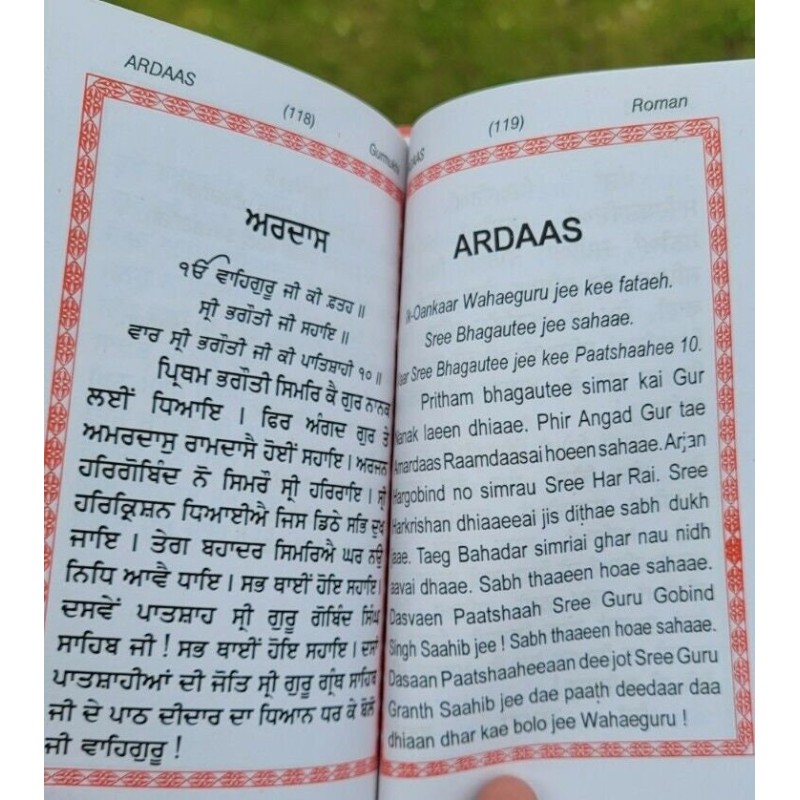 ARDAAS
(118)
ਅਰਦਾਸ
ੴ ਵਾਹਿਗੁਰੂ ਜੀ ਕੀ ਫ਼ਤਹ ॥
ਸ੍ਰੀ ਭਗੌਤੀ ਜੀ ਸਹਾਇ ॥
ਵਾਰ ਸ੍ਰੀ ਭਗੌਤੀ ਜੀ ਕੀ ਪਾਤਿਸ਼ਾਹੀ ੧੦ ॥
ਪ੍ਰਿਥਮ ਭਗੌਤੀ ਸਿਮਰਿ ਕੈ ਗੁਰ ਨਾਨਕ
ਲਈਂ ਧਿਆਇ । ਫਿਰ ਅੰਗਦ ਗੁਰ ਤੇ
ਅਮਰਦਾਸੁ ਰਾਮਦਾਸੈ ਹੋਈਂ ਸਹਾਇ । ਅਰਜਨ
ਹਰਿਗੋਬਿੰਦ ਨੋ ਸਿਮਰੌ ਸ੍ਰੀ ਹਰਿਰਾਇ । ਸ੍ਰੀ
ਹਰਿਕ੍ਰਿਸ਼ਨ ਧਿਆਈਐ ਜਿਸ ਡਿਠੇ ਸਭਿ ਦੁਖ
ਜਾਇ । ਤੇਗ ਬਹਾਦਰ ਸਿਮਰਿਐ ਘਰ ਨਉ
ਨਿਧਿ ਆਵੈ ਧਾਇ । ਸਭ ਥਾਈਂ ਹੋਇ ਸਹਾਇ ।
ਦਸਵੇਂ ਪਾਤਸ਼ਾਹ ਸ੍ਰੀ ਗੁਰੂ ਗੋਬਿੰਦ ਸਿੰਘ
ਸਾਹਿਬ ਜੀ ! ਸਭ ਥਾਈਂ ਹੋਇ ਸਹਾਇ । ਦਸਾਂ
ਪਾਤਸ਼ਾਹੀਆਂ ਦੀ ਜੋਤਿ ਸ੍ਰੀ ਗੁਰੂ ਗ੍ਰੰਥ ਸਾਹਿਬ
ਜੀ ਦੇ ਪਾਠ ਦੀਦਾਰ ਦਾ ਧਿਆਨ ਧਰ ਕੇ ਬੋਲੋ
ਜੀ ਵਾਹਿਗੁਰੂ !
(119)
Roman
ARDAAS
Wahaeguru jee kee fataeh.
Sree Bhagautee jee sahaae.
Sree Bhagautee jee kee Paatshaahee 10.
Pritham bhagautee simar kai Gur
Nanak laeen dhiaae. Phir Angad Gur tae
Amardaas Raamdaasai hoeen sahaae. Arjan
Hargobind no simrau Sree Har Rai. Sree
Harkrishan dhiaaeeai jis dithae sabh dukh
Taeg Bahadar simriai ghar nau nidh
aavai dhaae. Sabh thaaeen hoae sahaae.
Dasvaen Paatshaah Sree Guru Gobind
Singh Saahib jee ! Sabh thaaeen hoae sahaae.
Dasaan Paatshaaheeaan dee jot Sree Guru
Granth Saahib jee dae paath deedaar daa
dhiaan dhar kae bolo jee Wahaeguru !